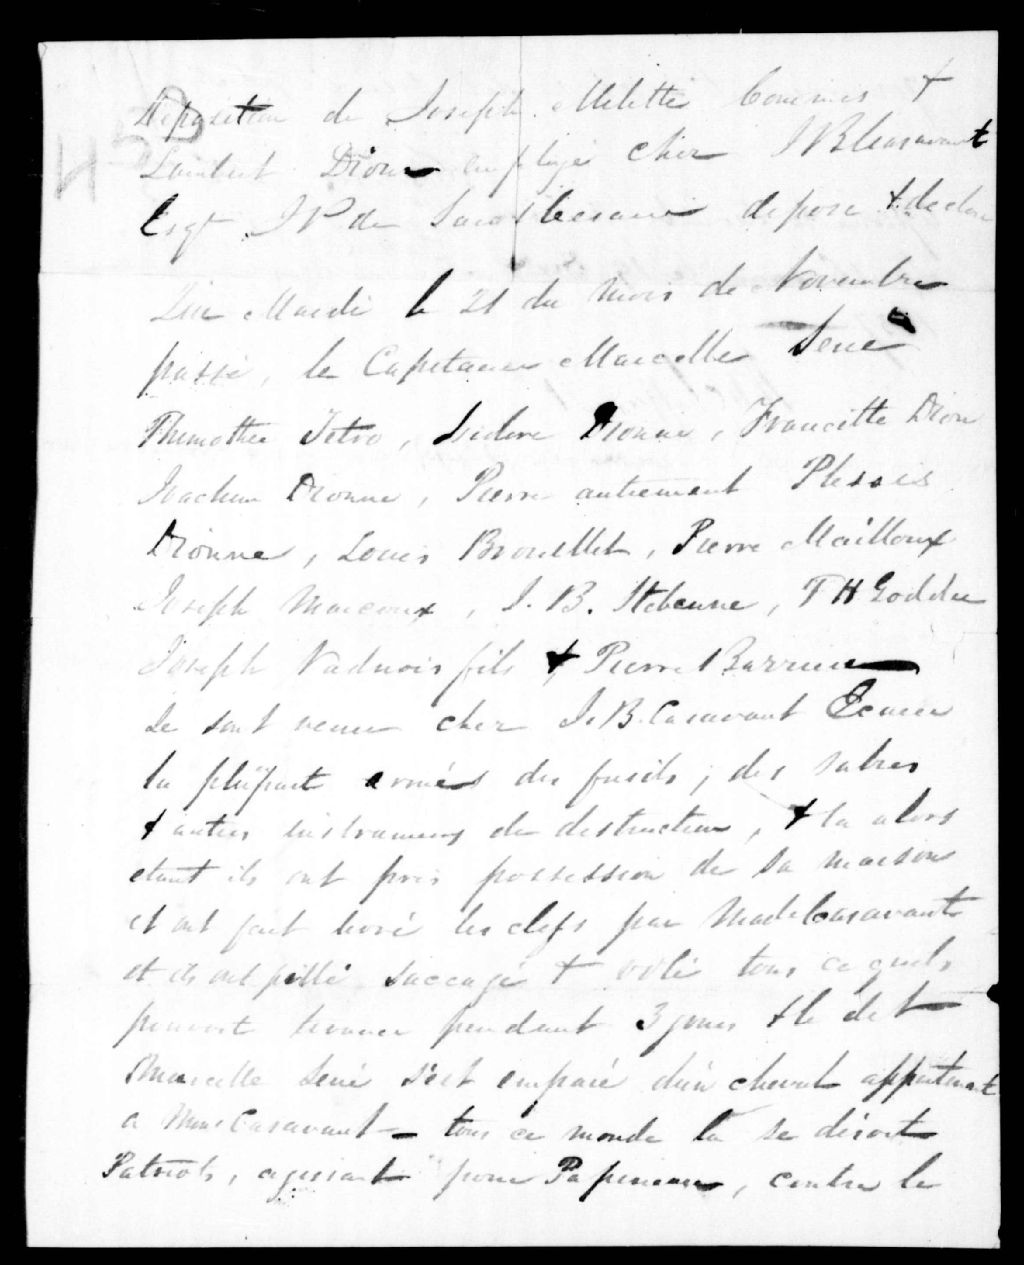 Deposition de Joseph Milette Commis &
Lambert Dionne employé chez J B Casavant
Esqr J P de Saint Cesaire depose & declare
Que Mardi le 21 du mois de Novembre
passé, le Capitaine Marcelle Sené
Thimothee Tetro, Isidore Dionne, Francille Dion
Joachim Dionne, Pierre autrement Plessis
Dionne, Louis Brouillet, Pierre Mailloux
Joseph Marcoux, J. B. Stebenne, T H Goddu
Joseph Vadnois fils & Pierre Barriere
Se sont venu chez J. B. Casavant Ecuier
la plupart armés des fusils, des sabres
& autres instrumens de destruction, & la alors
etant ils ont pris possession de sa maison
et ont fait livré les clefs par Made Casavant
et ils ont pillé saccagé & volé tous ce quils
peuvoit trouver pendant 3 jours & le dit
Marcelle Sené s'est emparé d'un cheval appartenant
a Mons Casavant - tous ce monde la se disoit
Patriots, agissant pour Papineau, contre le